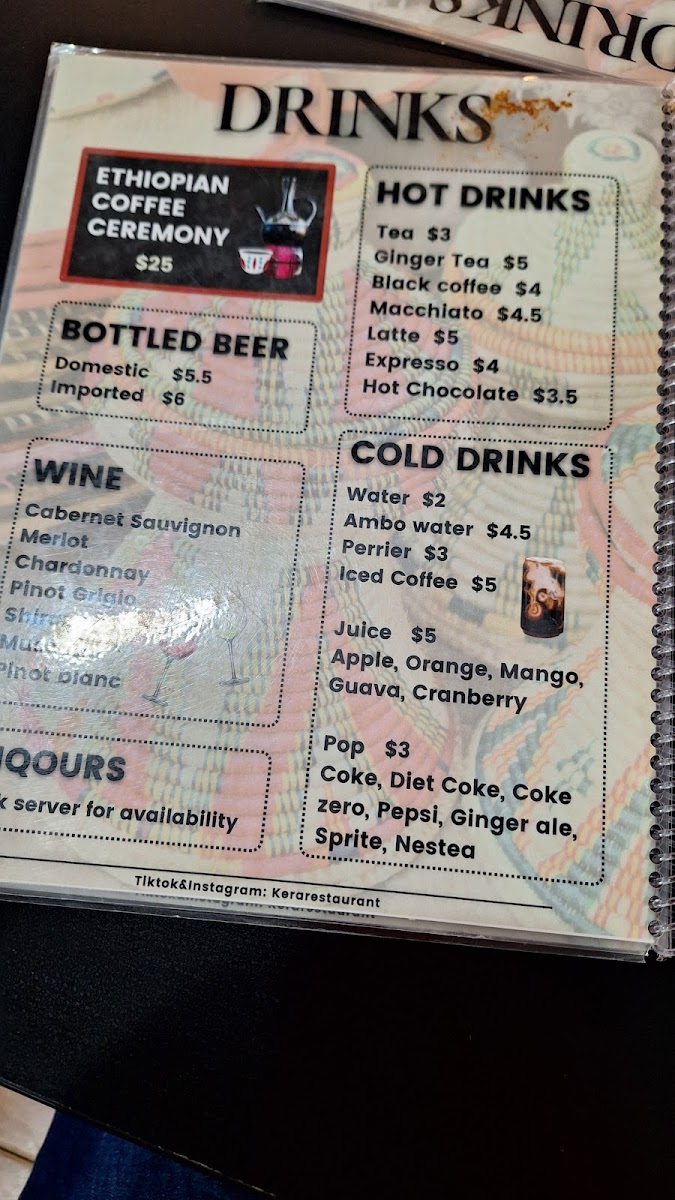 DRINKS
DRINKS
ETHIOPIAN
COFFEE
CEREMONY
$25
BOTTLED BEER
Domestic $5.5
Imported $6
WINE
Cabernet Sauvignon
Merlot
Chardonnay
Pinot Grigio
Pinot blanc
HOT DRINKS
Tea $3
Ginger Tea $5
Black coffee $4
Macchiato $4.5
Latte $5
Expresso $4
Hot Chocolate $3.5
COLD DRINKS
Water $2
Ambo water $4.5
Perrier $3
Iced Coffee $5
Juice $5
Apple, Orange, Mango,
Guava, Cranberry
Pop $3
Coke, Diet Coke, Coke
zero, Pepsi, Ginger ale,
Sprite, Nestea
IQOURS
k server for availability
Tiktok&Instagram: Kerarestaurant